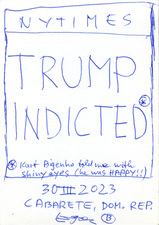 NYTIMES
TRUMP
INDICTED*
* Kurt Bigenho told me with
shiny eyes (he was HAPPY!!)
30 III 2023
CABARETE, DOM. REP.
B